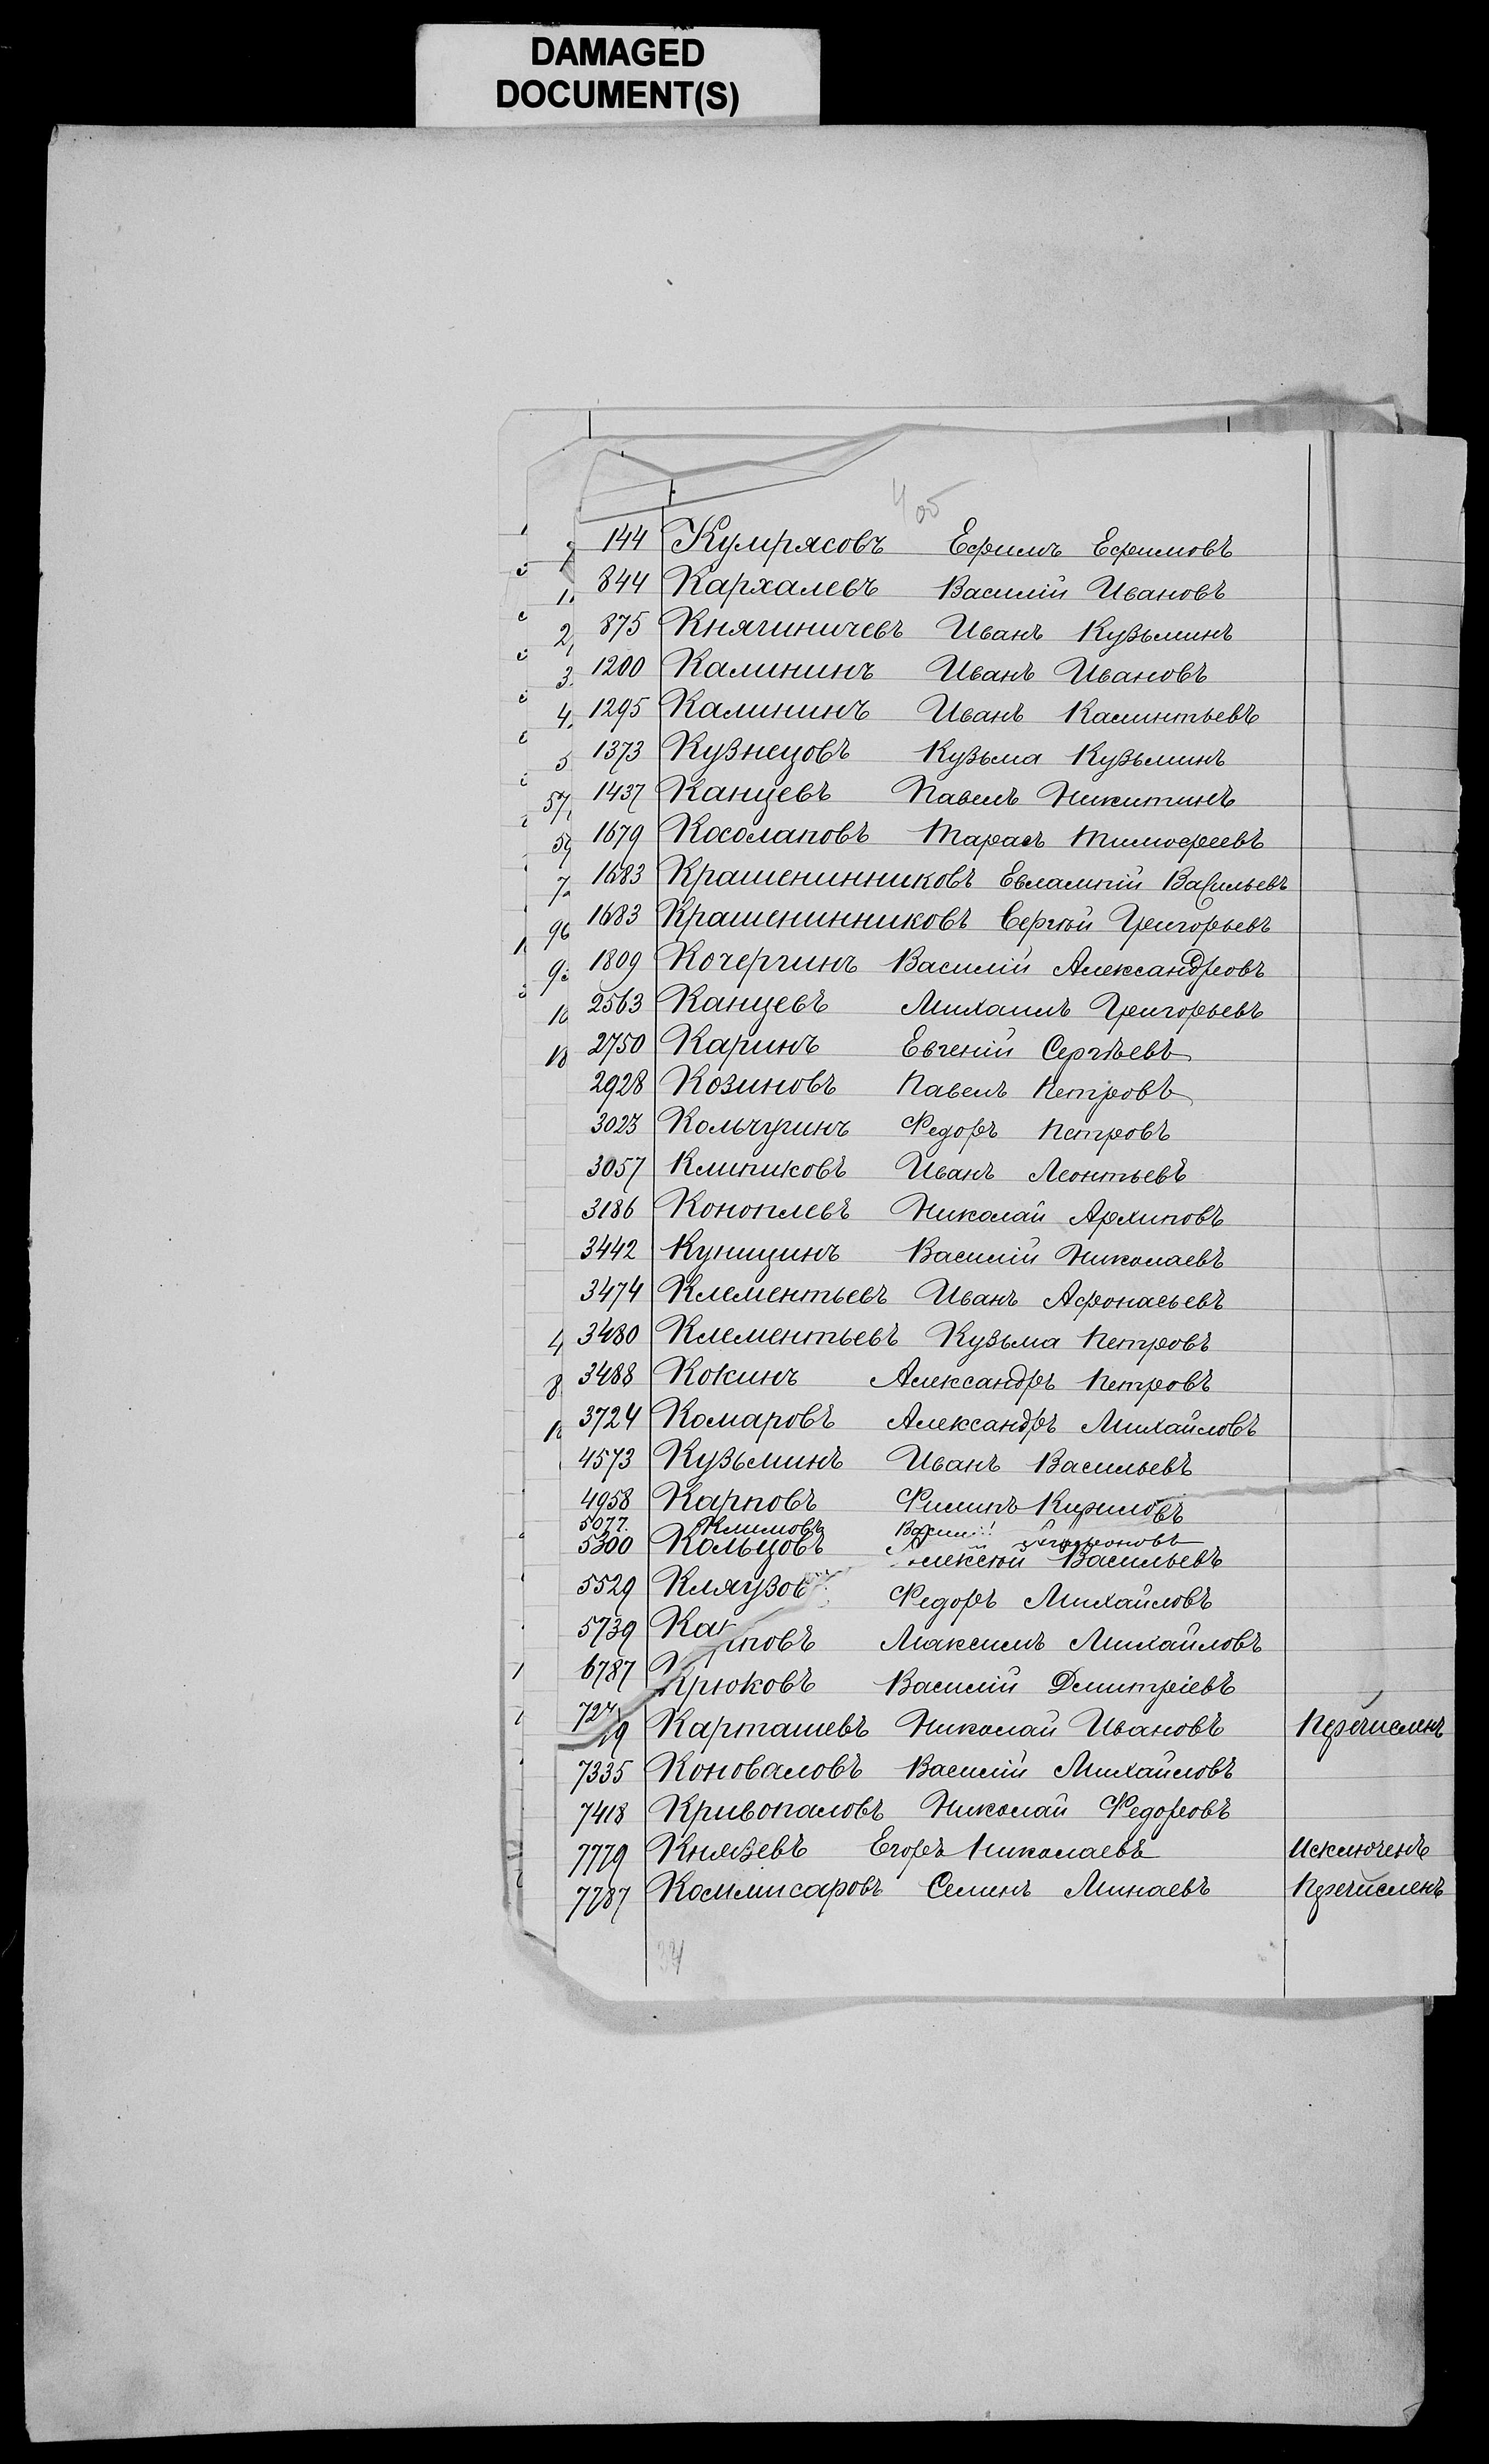 DAMAGED
DOCUMENT(S)
405
144 Кумрясовъ Ефимъ Ефимовъ
844 Кархалевъ Василій Ивановъ
875 Княгиничевъ Иванъ Кузьминъ
1200 Калининъ Иванъ Ивановъ
1295 Калининъ Иванъ Калинтьевъ
1373 Кузнецовъ Кузьма Кузьминъ
1437 Канцевъ Павелъ Никитинъ
1679 Косолаповъ Тарасъ Тимофеевъ
1683 Крашенинниковъ Евлампій Васильевъ
1683 Крашенинниковъ Сергѣй Григорьевъ
1809 Кочергинъ Василій Александровъ
2563 Канцевъ Михаилъ Григорьевъ
2750 Каринъ Евгеній Сергѣевъ
2928 Козиновъ Павелъ Петровъ
3023 Кольчугинъ Федоръ Петровъ
3057 Клипиковъ Иванъ Леонтьевъ
3186 Коноплевъ Николай Архиповъ
3442 Куницинъ Василій Николаевъ
3474 Клементьевъ Иванъ Афонасьевъ
3480 Клементьевъ Кузьма Петровъ
3488 Кокинъ Александръ Петровъ
3724 Комаровъ Александръ Михайловъ
4573 Кузьминъ Иванъ Васильевъ
4958 Карповъ Филипъ Кириловъ
5077. Климовъ
5300 Кольцовъ Алексѣй Васильевъ
5529 Клягузов Федоръ Михайловъ
5739 Максимъ Михайловъ
6787 Крюковъ Василій Дмитріевъ
Карташевъ Николай Ивановъ Перечисленъ
7335 Коноваловъ Василій Михайловъ
7418 Кривопаловъ Николай Федоровъ
7779 Князевъ Егоръ Николаевъ Исключенъ
7787 Коммисаровъ Семенъ Минаевъ Перечисленъ
34